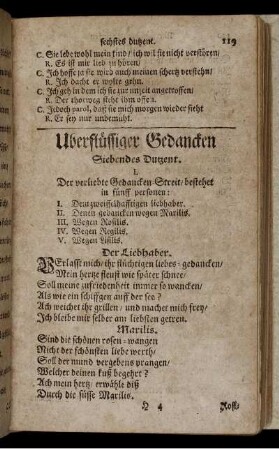 sechstes dutzent. 119
C. Sie lebe wohl mein kind / ich wil sie nicht verstören /
R. Es ist mir lieb zu hören /
C. Ich hoffe ja sie wird auch meinen schertz verstehn /
R. Ich dacht er wolte gehn.
C. Ich geh in dem ich sie zur unzeit angetroffen;
R. Der thorweg steht ihm offen.
C. Jedoch parol, daß sie mich morgen wieder sieht
R. Er sey nur unbemüht.
Uberflüssiger Gedancken
Siebendes Dutzent.
I.
Der verliebte Gedancken-Streit / bestehet
in fünff personen:
I. Dem zweiffelhafftigen liebhaber.
II. Denen gedancken wegen Marilis.
III. Wegen Rosilis.
IV. Wegen
V. Wegen
Der Liebhaber.
Verlasst mich / ihr flüchtigen liebes-gedancken /
Mein hertze fleust wie später schnee /
Soll meine zufriedenheit immer so wancken /
Als wie ein schiffgen auff der see?
Ach weichet ihr grillen / und machet mich frey /
Ich bleibe mir selber am liebsten getreu.
Marilis.
Sind die schönen rosen-wangen
Nicht der schönsten liebe werth /
Soll der mund vergebens prangen /
Welcher deinen kuß begehrt?
Ach mein hertz / erwähle diß
Durch die süsse Marilis.
H 4